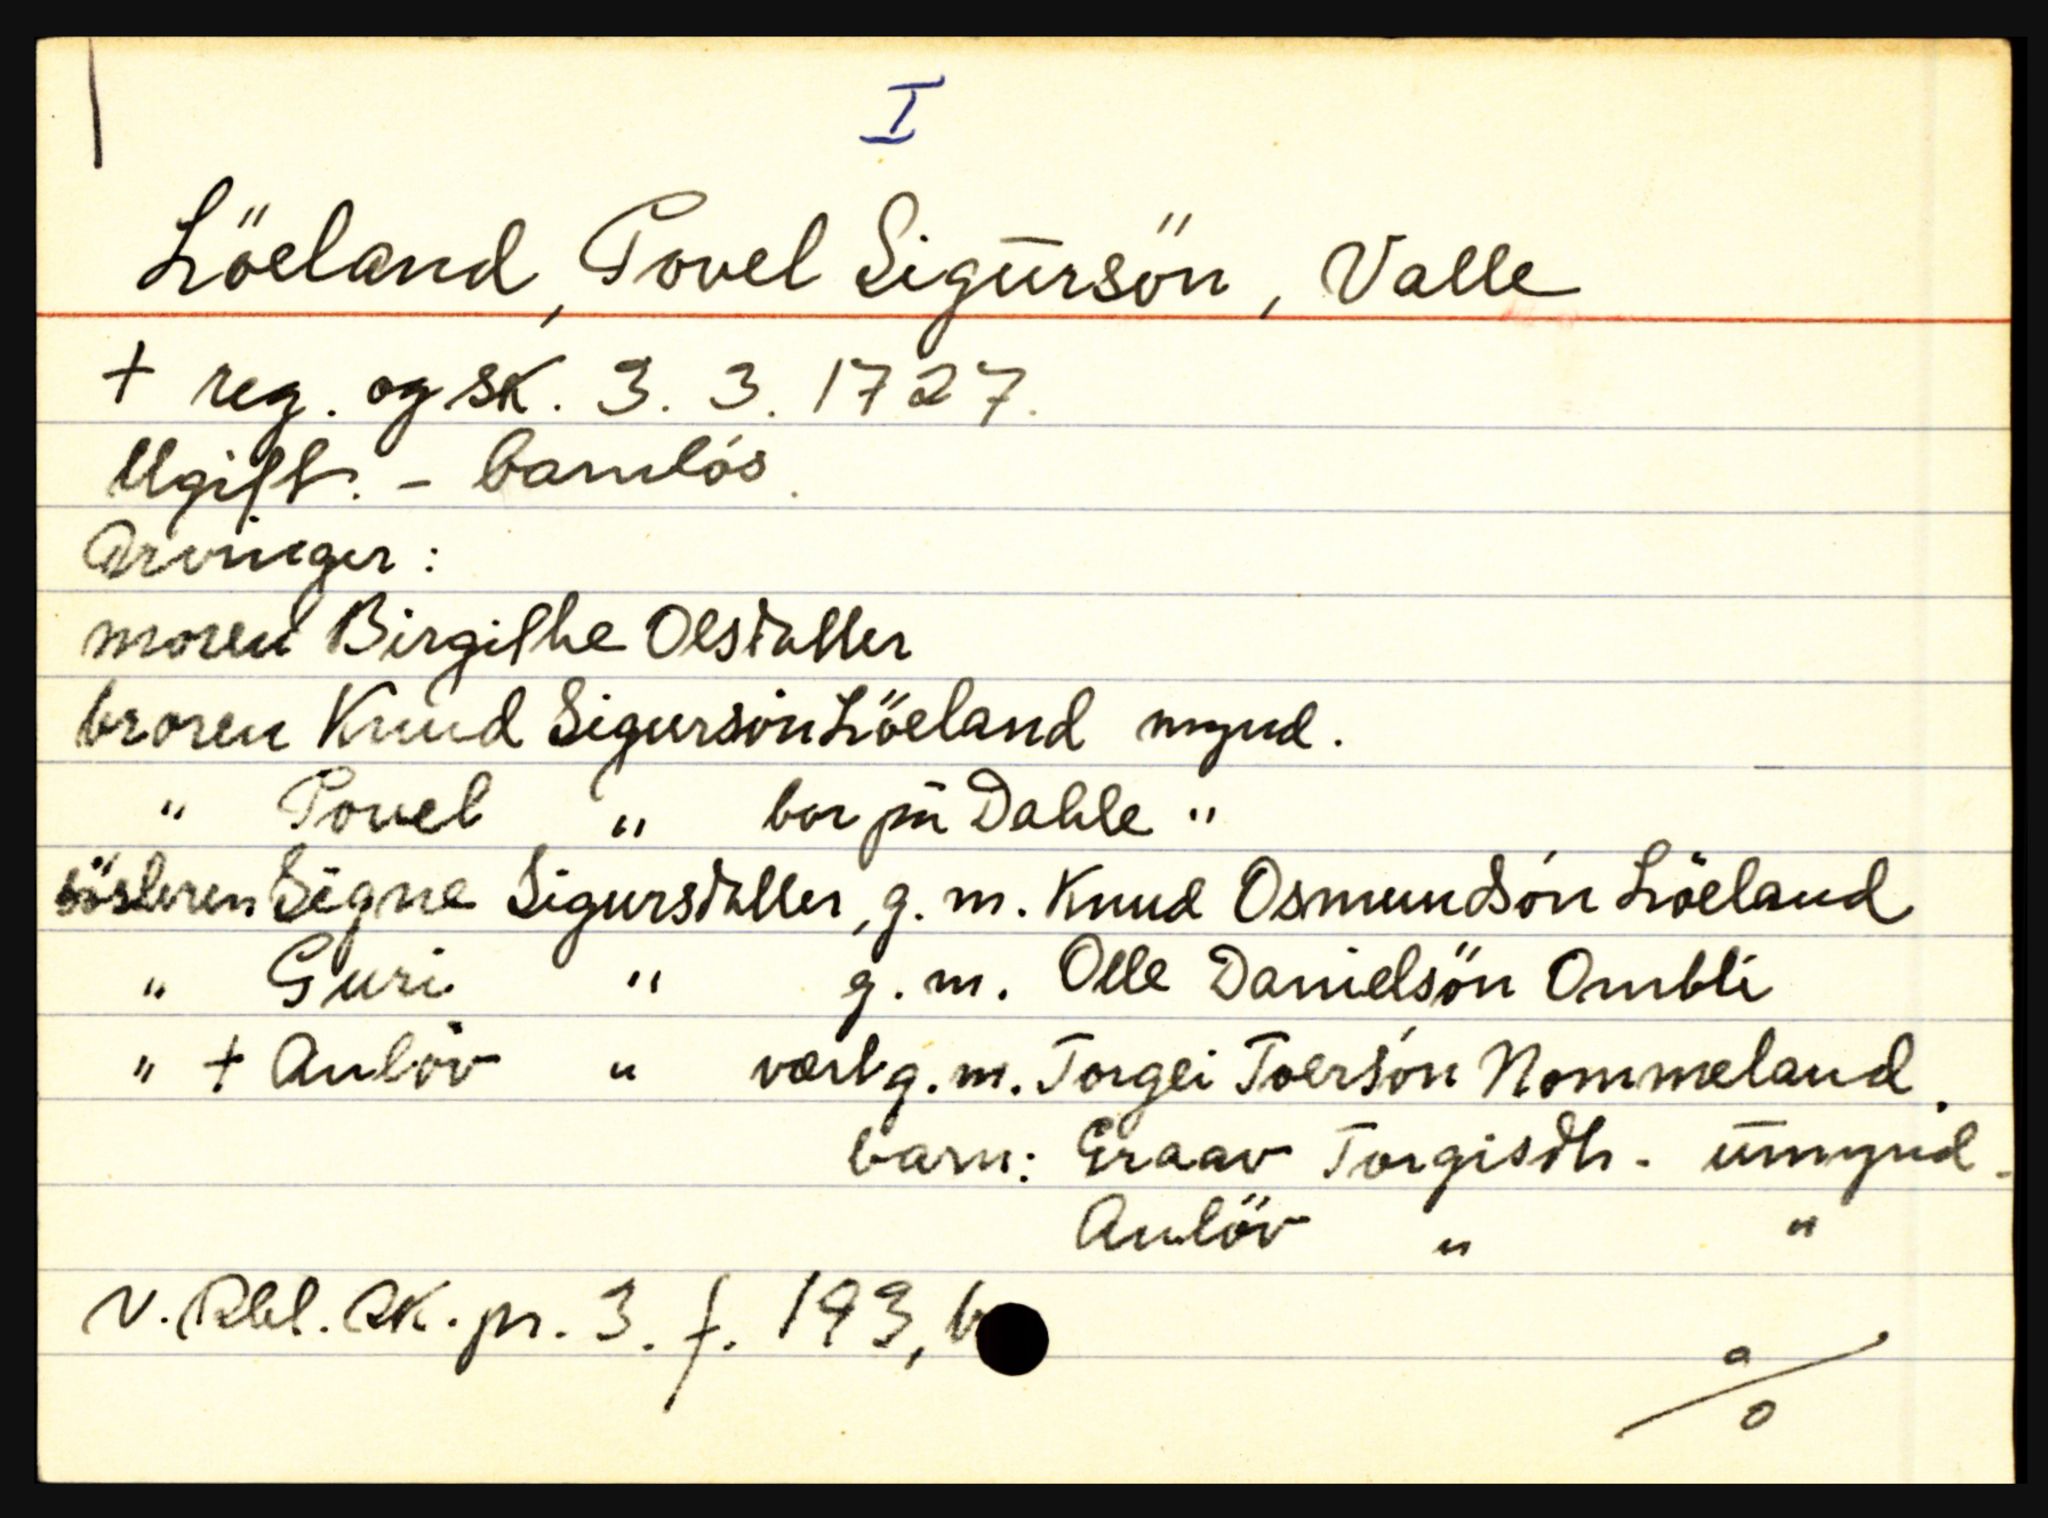 I
Löeland, Povel Sigursön, Valle
+ reg. og sk. 3. 3. 1727.
Ugift. - barnlös.
Arvinger:
moren Birgithe Olsdatter
broren Knud Sigursön Löeland mynd.
" Povel " bor på Dahle "
sösteren Signe Sigursdatter, g. m. Knud Osmundsön Löeland
" Guri " g. m. Olle Danielsön Ombli
" + Anlöv " vært g. m. Torgei Toersön Nommeland.
barn: Graav Torgisdtr. umynd.
Anlöv " "
V. Rbl. Sk. pr. 3. f. 193, b
a/o